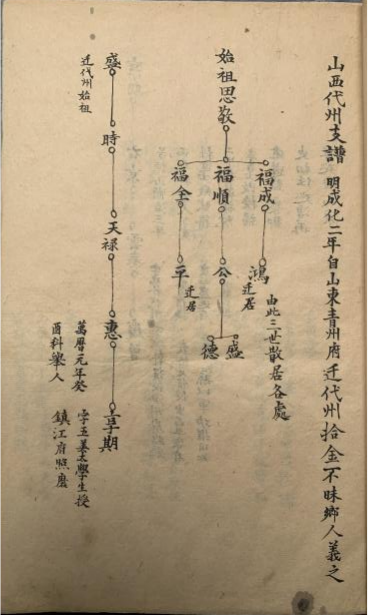 山西代州支譜 明成化二年自山東青州府迁代州拾金不昧鄉人義之
始祖思敬
福成
福順
福全
鴻
迁居
公
平
迁居
由此三世散居各處
盛
德
盛
迁代州始祖
時
天禄
惠
萬曆元年癸
酉科舉人
享期
字玉菴太學生授
鎮江府照磨